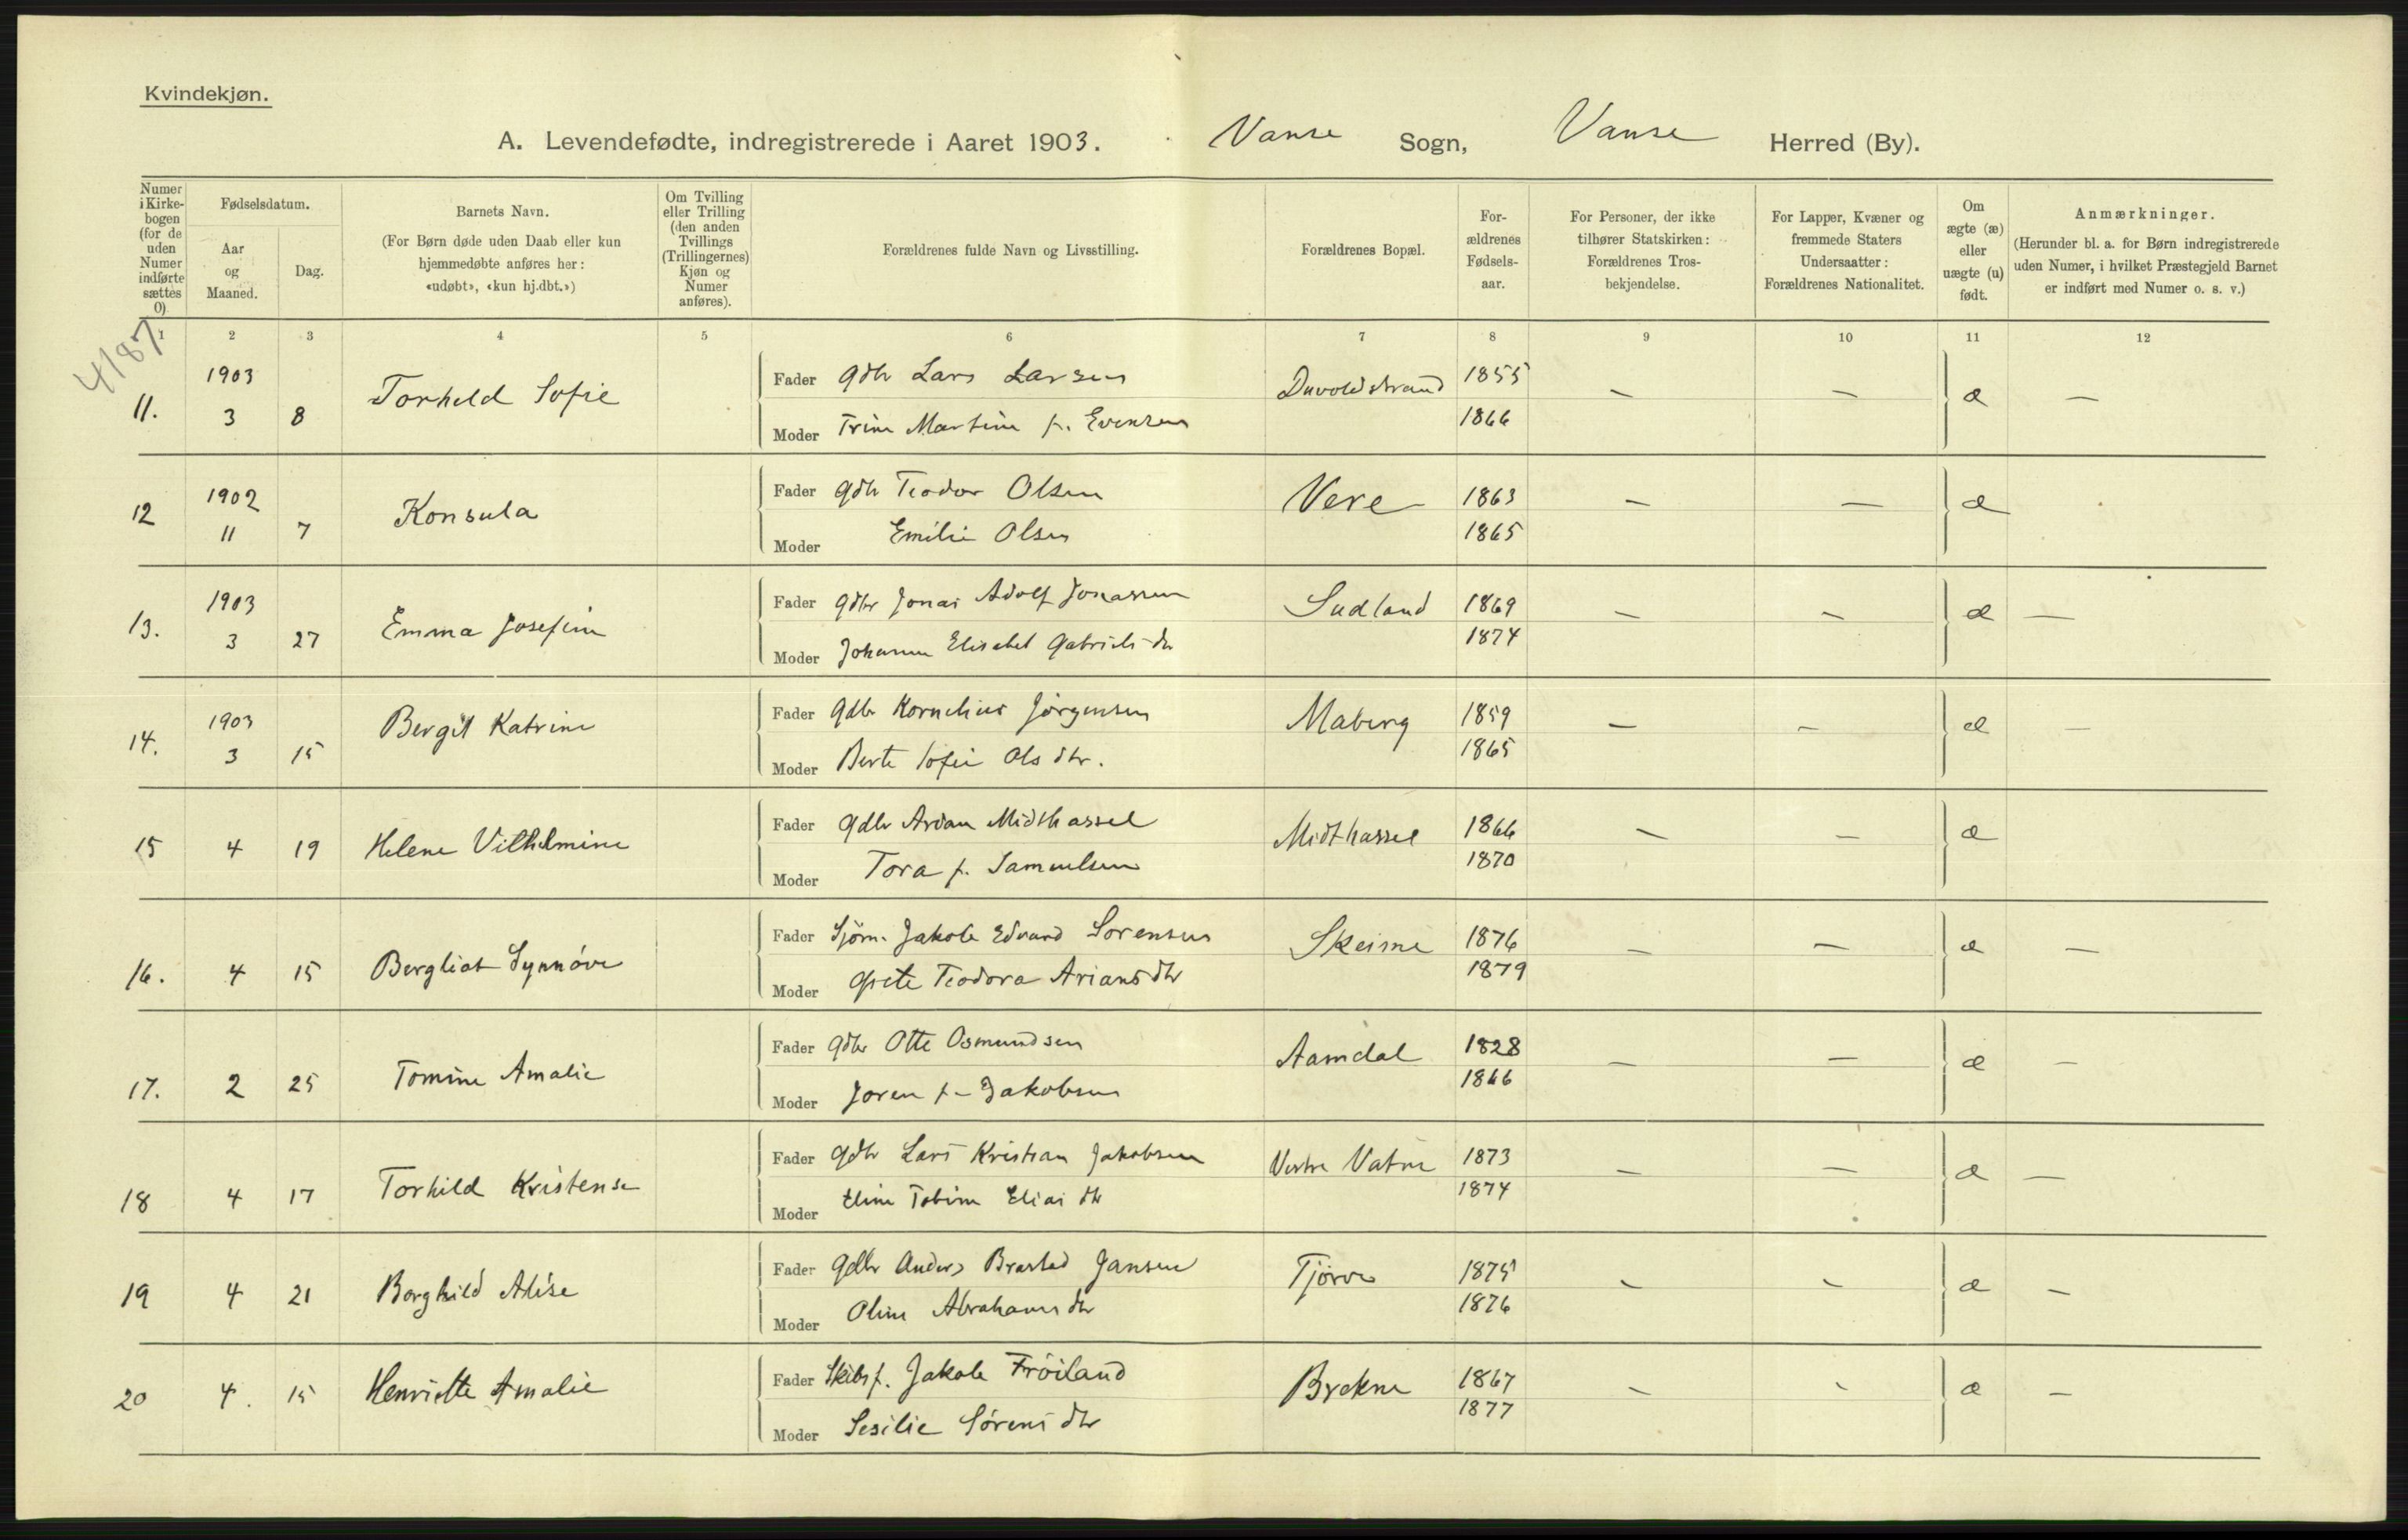 Kvindekjøn.
A. Levendefødte, indregistrerede i Aaret 1903. Vanse Sogn, Vanse Herred (By).
Numer i Kirkebogen (for de uden Numer indførte sættes 0)
Fødselsdatum.
Aar og Maaned.
Dag.
Barnets Navn.
(For Børn døde uden Daab eller kun hjemmedøbte anføres her: «udøbt», «kun hj.dbt.»)
Om Tvilling eller Trilling (den anden Tvillings (Trillingernes) Kjøn og Numer anføres).
Forældrenes fulde Navn og Livsstilling.
Forældrenes Bopæl.
For-ældrenes Fødsels-aar.
For Personer, der ikke tilhører Statskirken: Forældrenes Tros-bekjendelse.
For Lapper, Kvæner og fremmede Staters Undersaatter: Forældrenes Nationalitet.
Om ægte (æ) eller uægte (u) født.
Anmærkninger.
(Herunder bl. a. for Børn indregistrerede uden Numer, i hvilket Præstegjeld Barnet er indført med Numer o. s. v.)
1 2 3 4 5 6 7 8 9 10 11 12
4187
11. 1903 3 8 Torheld Sofie
Fader Gdbr Lars Larsen Duvoldstrand 1855 — — æ —
Moder Trine Martine f. Evensen 1866
12 1902 11 7 Konsula
Fader Gdbr Teodor Olsen Vere 1863 — — æ
Moder Emilie Olsen 1865
13. 1903 3 27 Emma Josefine
Fader Gdbr Jonas Adolf Jonassen Sudland 1869 — — æ —
Moder Johanne Elisabet Gabriels dtr 1874
14. 1903 3 15 Bergit Katrine
Fader Gdbr Kornelius Jörgensen Maberg 1859 — — æ —
Moder Berte Sofie Ols dtr. 1865
15 4 19 Helene Vilhelmine
Fader Gdbr Ardan Midthassel Midthassel 1866 — — æ
Moder Tora f. Samuelsen 1870
16. 4 15 Bergliot Synnöve
Fader Sjöm. Jakob Edvard Sorensen Skeime 1876 — — æ —
Moder Grete Teodora Arians dtr 1879
17. 2 25 Tomine Amalie
Fader Gdbr Otte Osmundsen Aamdal 1828 — — æ —
Moder Joren f. Jakobsen 1866
18 4 17 Torhild Kristense
Fader Gdbr Lars Kristian Jakobsen Vestre Vatne 1873 — — æ —
Moder Eline Tobine Elias dtr 1874
19 4 21 Borghild Alise
Fader Gdbr Anders Brastad Jansen Tjörve 1875 — — æ —
Moder Oline Abrahams dtr 1876
20 4. 15 Henriette Amalie
Fader Skibsf. Jakob Fröiland Brekne 1867 — — æ —
Moder Sesilie Sörens dtr 1877